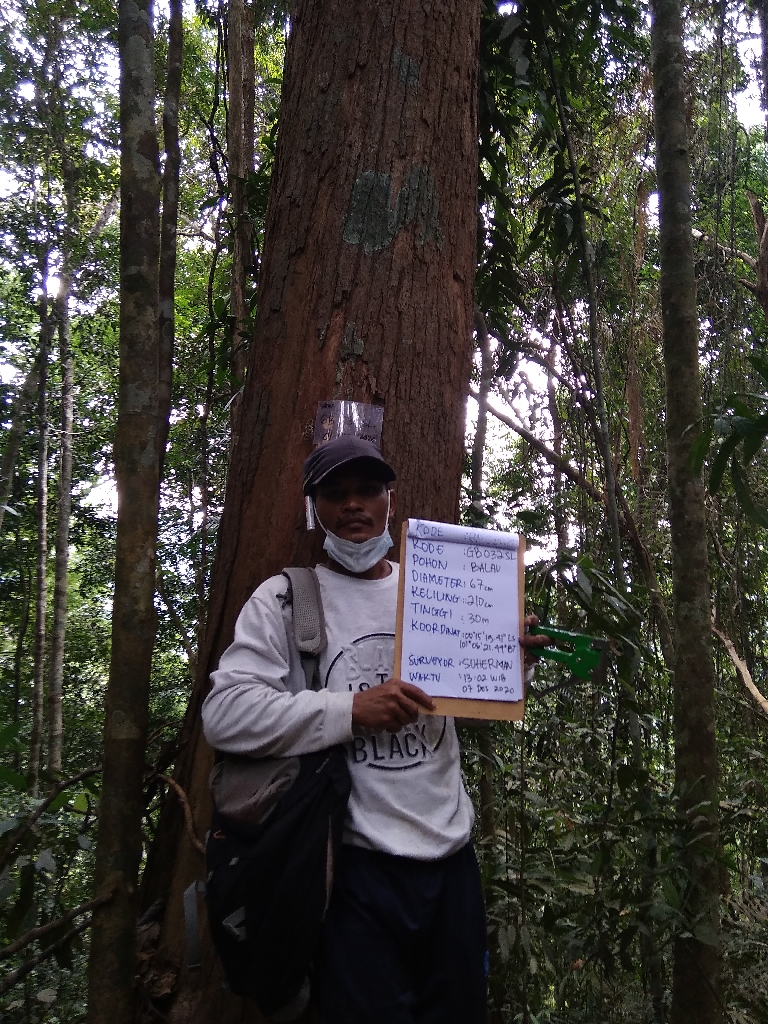 KODE
KODE : GB032SL
POHON : BALAU
DIAMETER : 67 cm
KELILING : 210 cm
TINGGI : 30 m
KOORDINAT : 00°15'19.41" LS
101°06'21.49" BT
SURVEYOR : SUHERMAN
WAKTU : 13:02 WIB
07 DES 2020
BLACK
IS
BLACK